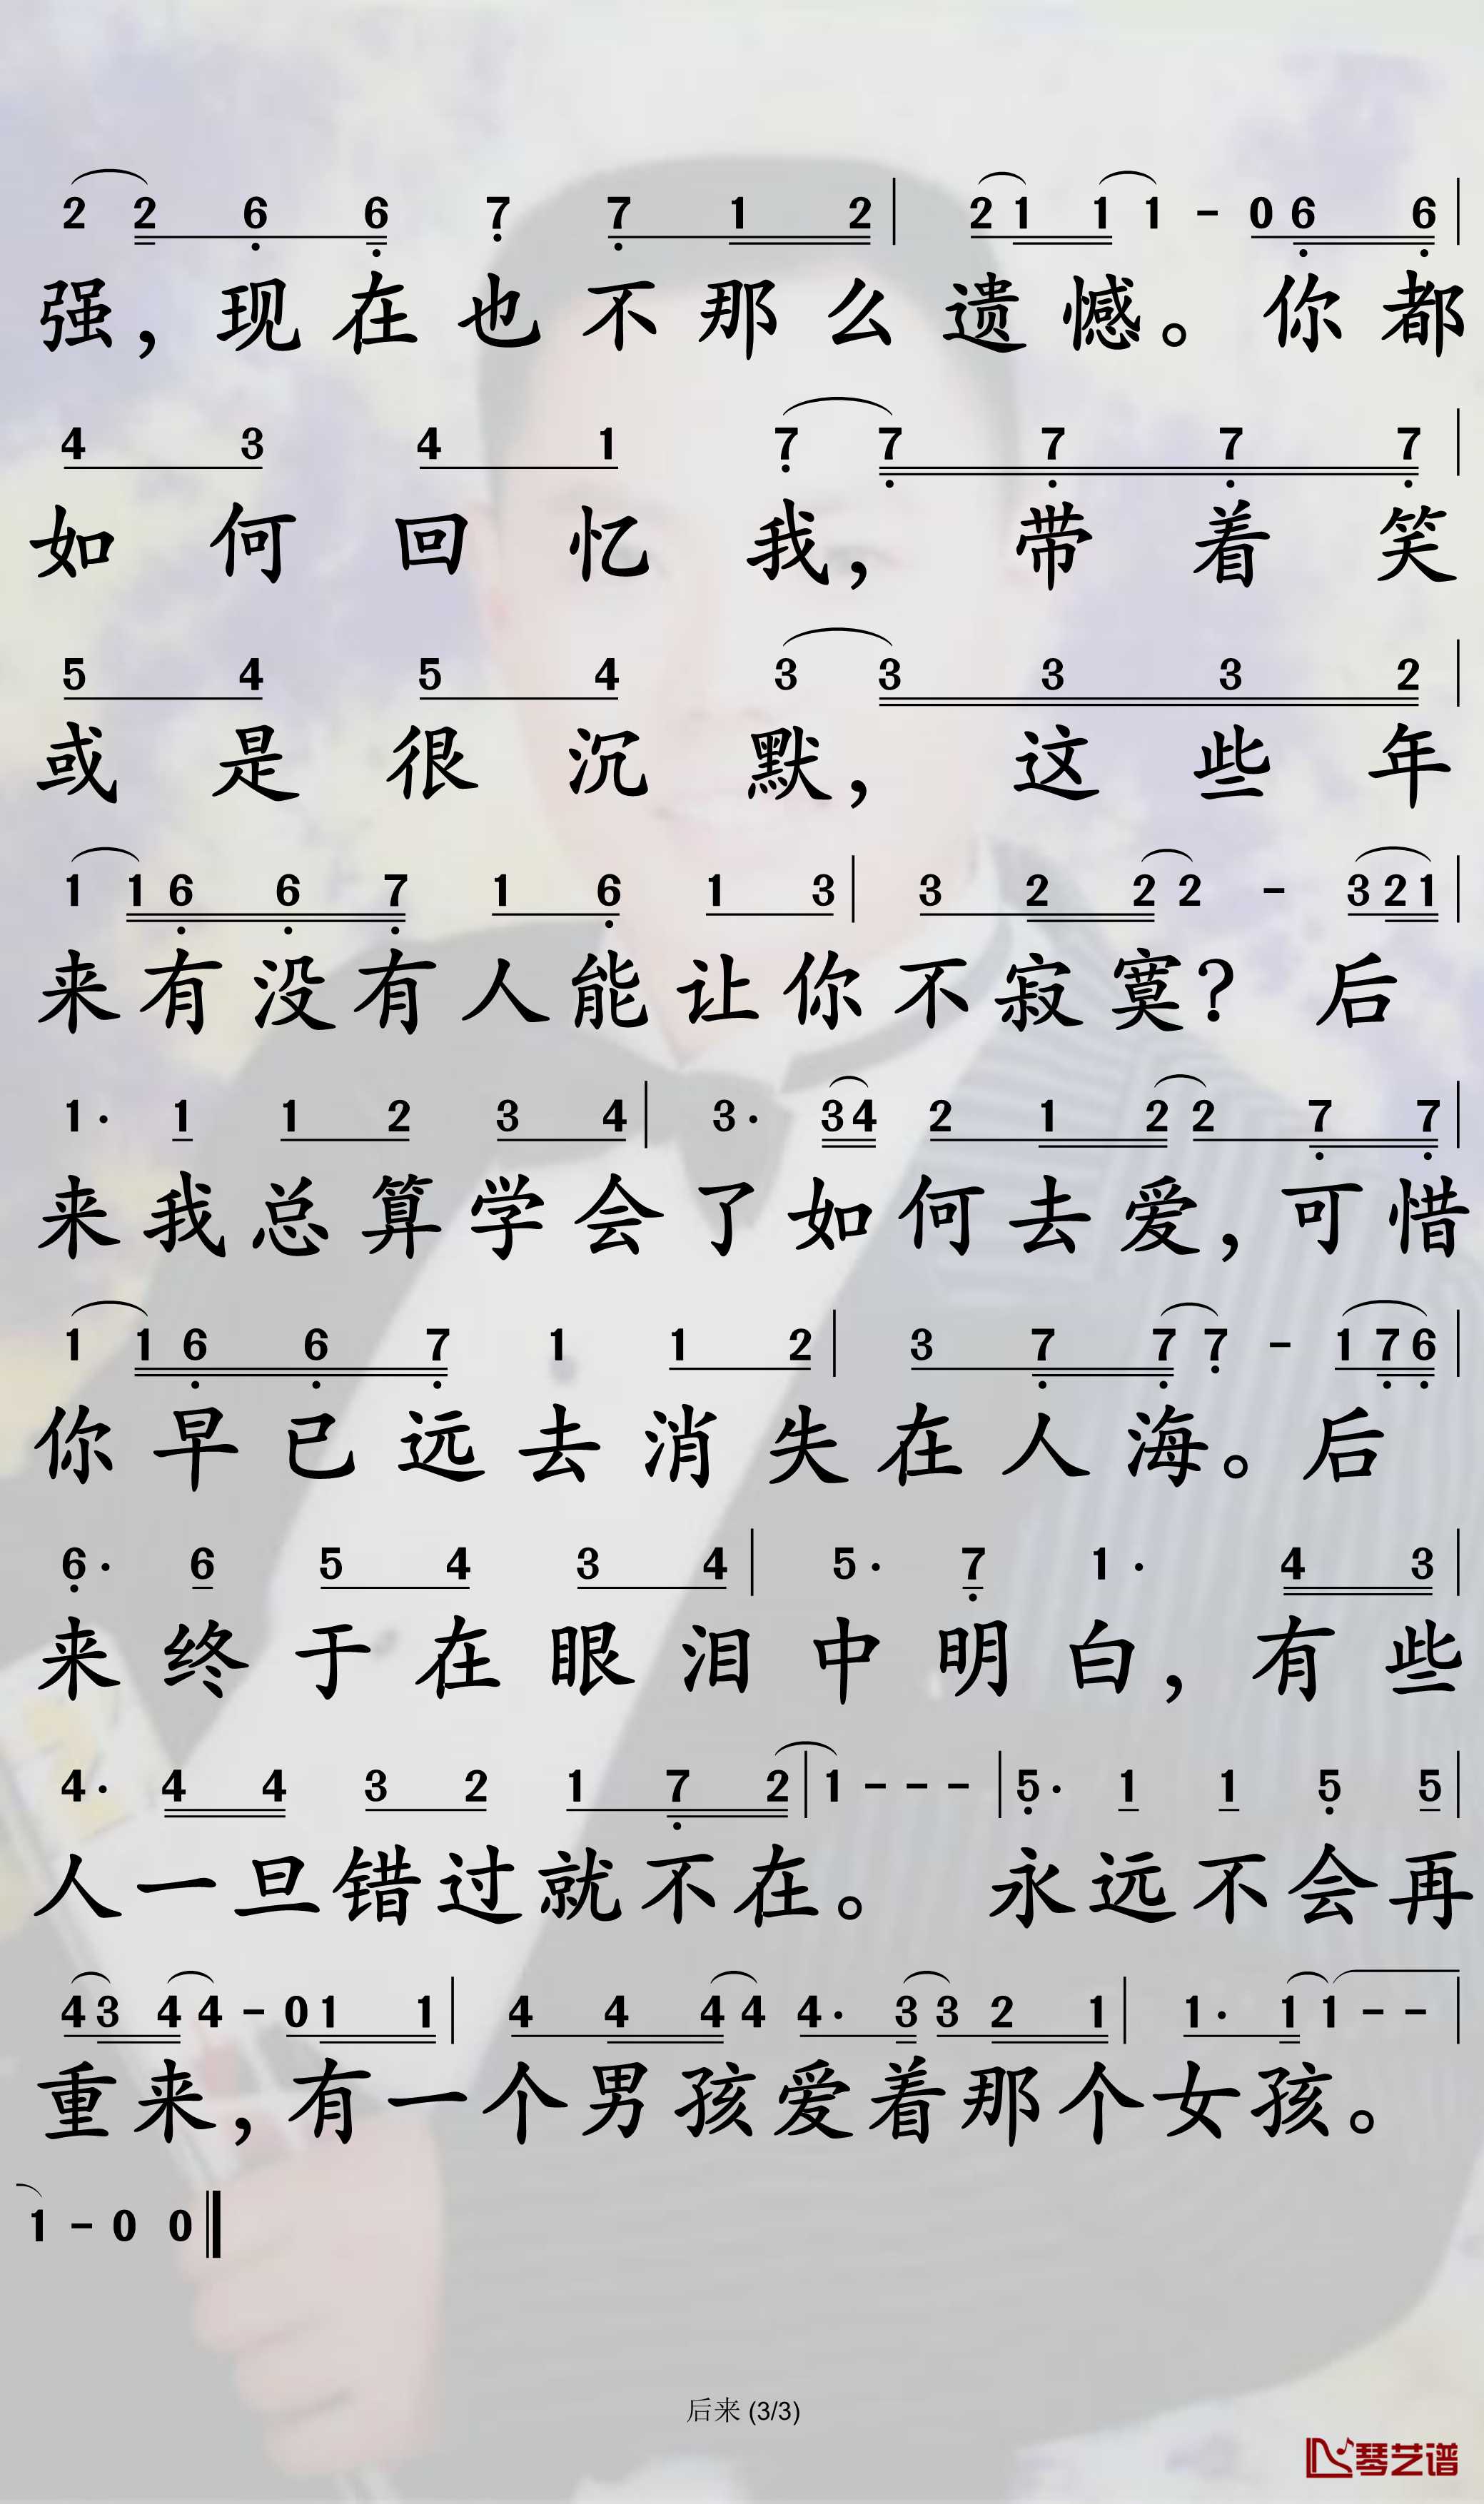 2 2 6 6 7 7 1 2 | 2 1 1 1 - 0 6 6 |
强，现在也不那么遗憾。你都
4 3 4 1 7 7 7 7 7 |
如何回忆我，带着笑
5 4 5 4 3 3 3 3 2 |
或是很沉默，这些年
1 1 6 6 7 1 6 1 3 | 3 2 2 2 - 3 2 1 |
来有没有人能让你不寂寞？后
1· 1 1 2 3 4 | 3· 3 4 2 1 2 2 7 7 |
来我总算学会了如何去爱，可惜
1 1 6 6 7 1 1 2 | 3 7 7 7 - 1 7 6 |
你早已远去消失在人海。后
6· 6 5 4 3 4 | 5· 7 1· 4 3 |
来终于在眼泪中明白，有些
4· 4 4 3 2 1 7 2 | 1 - - - | 5· 1 1 5 5 |
人一旦错过就不在。永远不会再
4 3 4 4 - 0 1 1 | 4 4 4 4 4· 3 3 2 1 | 1· 1 1 - - |
重来，有一个男孩爱着那个女孩。
1 - 0 0 ‖
后来 (3/3)
琴艺谱